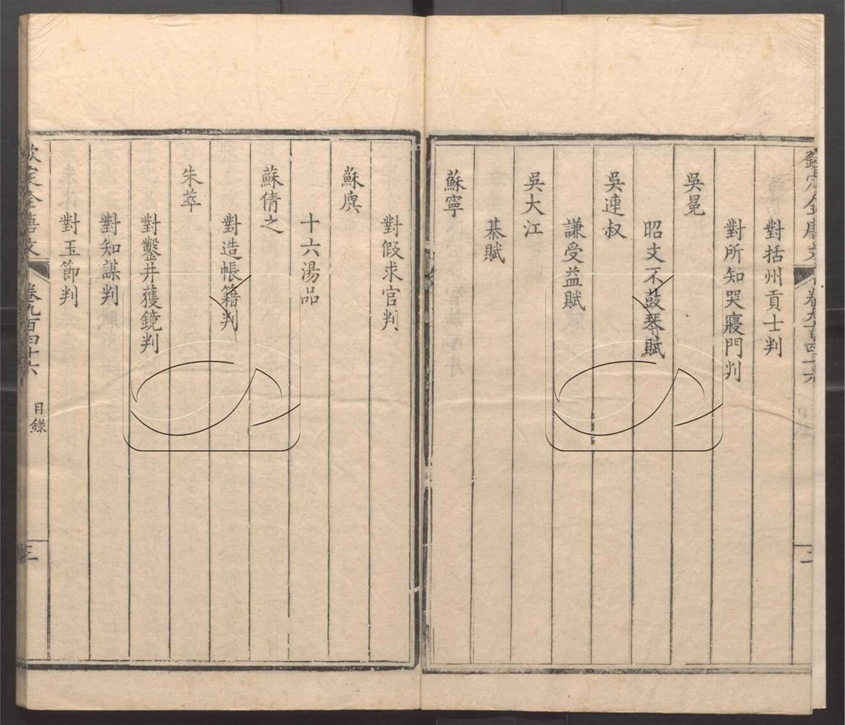 對括州貢士判
對所知哭寢門判
吳冕
昭文不鼓琴賦
吳連叔
謙受益賦
吳大江
棊賦
蘇寧
對假求官判
蘇廙
十六湯品
蘇倩之
對造帳籍判
朱萃
對鑿井獲鏡判
對知謀判
對玉節判
欽定全唐文
卷九百四十六
目錄
三